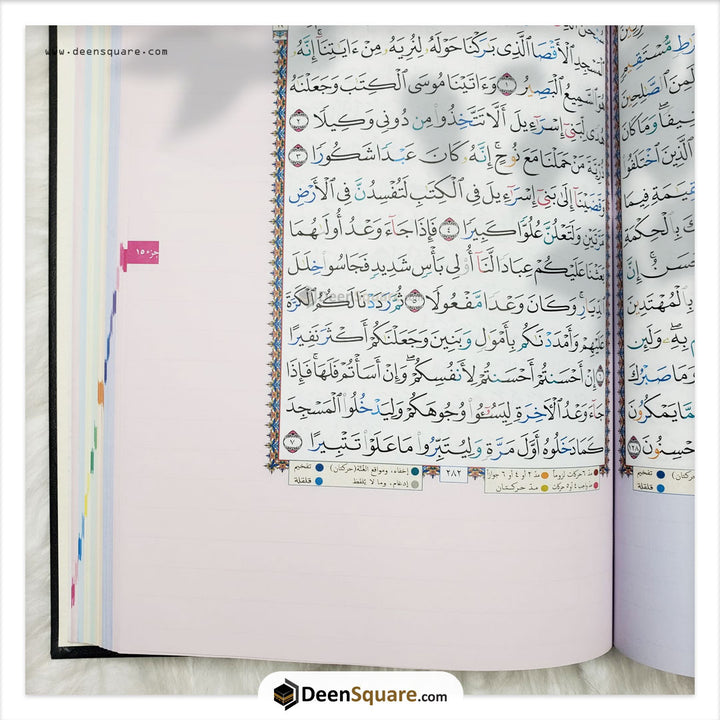 www.deensquare.com
ٱلْمَسْجِدِ ٱلْأَقْصَا ٱلَّذِى بَٰرَكْنَا حَوْلَهُۥ لِنُرِيَهُۥ مِنْ ءَايَٰتِنَآ إِنَّهُۥ
هُوَ ٱلسَّمِيعُ ٱلْبَصِيرُ ١ وَءَاتَيْنَا مُوسَى ٱلْكِتَٰبَ وَجَعَلْنَٰهُ
هُدًى لِّبَنِىٓ إِسْرَٰٓءِيلَ أَلَّا تَتَّخِذُوا۟ مِن دُونِى وَكِيلًا ٢
ذُرِّيَّةَ مَنْ حَمَلْنَا مَعَ نُوحٍ إِنَّهُۥ كَانَ عَبْدًا شَكُورًا ٣
وَقَضَيْنَآ إِلَىٰ بَنِىٓ إِسْرَٰٓءِيلَ فِى ٱلْكِتَٰبِ لَتُفْسِدُنَّ فِى ٱلْأَرْضِ
مَرَّتَيْنِ وَلَتَعْلُنَّ عُلُوًّا كَبِيرًا ٤ فَإِذَا جَآءَ وَعْدُ أُولَىٰهُمَا
بَعَثْنَا عَلَيْكُمْ عِبَادًا لَّنَآ أُو۟لِى بَأْسٍ شَدِيدٍ فَجَاسُوا۟ خِلَٰلَ
ٱلدِّيَارِ وَكَانَ وَعْدًا مَّفْعُولًا ٥ ثُمَّ رَدَدْنَا لَكُمُ ٱلْكَرَّةَ
عَلَيْهِمْ وَأَمْدَدْنَٰكُم بِأَمْوَٰلٍ وَبَنِينَ وَجَعَلْنَٰكُمْ أَكْثَرَ نَفِيرًا
٦ إِنْ أَحْسَنتُمْ أَحْسَنتُمْ لِأَنفُسِكُمْ وَإِنْ أَسَأْتُمْ فَلَهَا فَإِذَا
جَآءَ وَعْدُ ٱلْءَاخِرَةِ لِيَسُۥٓـُٔوا۟ وُجُوهَكُمْ وَلِيَدْخُلُوا۟ ٱلْمَسْجِدَ
كَمَا دَخَلُوهُ أَوَّلَ مَرَّةٍ وَلِيُتَبِّرُوا۟ مَا عَلَوْا۟ تَتْبِيرًا ٧
جزء ١٥
DeenSquare.com
مدّ ٦ حركات لزوماً مدّ ٢ أو ٤ أو ٦ جوازاً
مدّ واجب ٤ أو ٥ حركات مدّ حركتان
٢٨٢
إخفاء، ومواقع الغُنَّة (حركتان) تفخيم
إدغام، وما لا يُلفظ قلقلة
ٱلصَّٰلِحِينَ
وَمَا كَانَ
ٱلَّذِينَ ٱخْتَلَفُوا۟
ٱلْقِيَٰمَةِ فِيمَا
رَبِّكَ بِٱلْحِكْمَةِ
أَحْسَنُ إِنَّ
بِٱلْمُهْتَدِينَ
بِهِۦ وَلَئِن
وَمَا صَبْرُكَ
مِّمَّا يَمْكُرُونَ
مُّحْسِنُونَ ١٢٨
تفخيم
قلقلة
DeenSquare.com